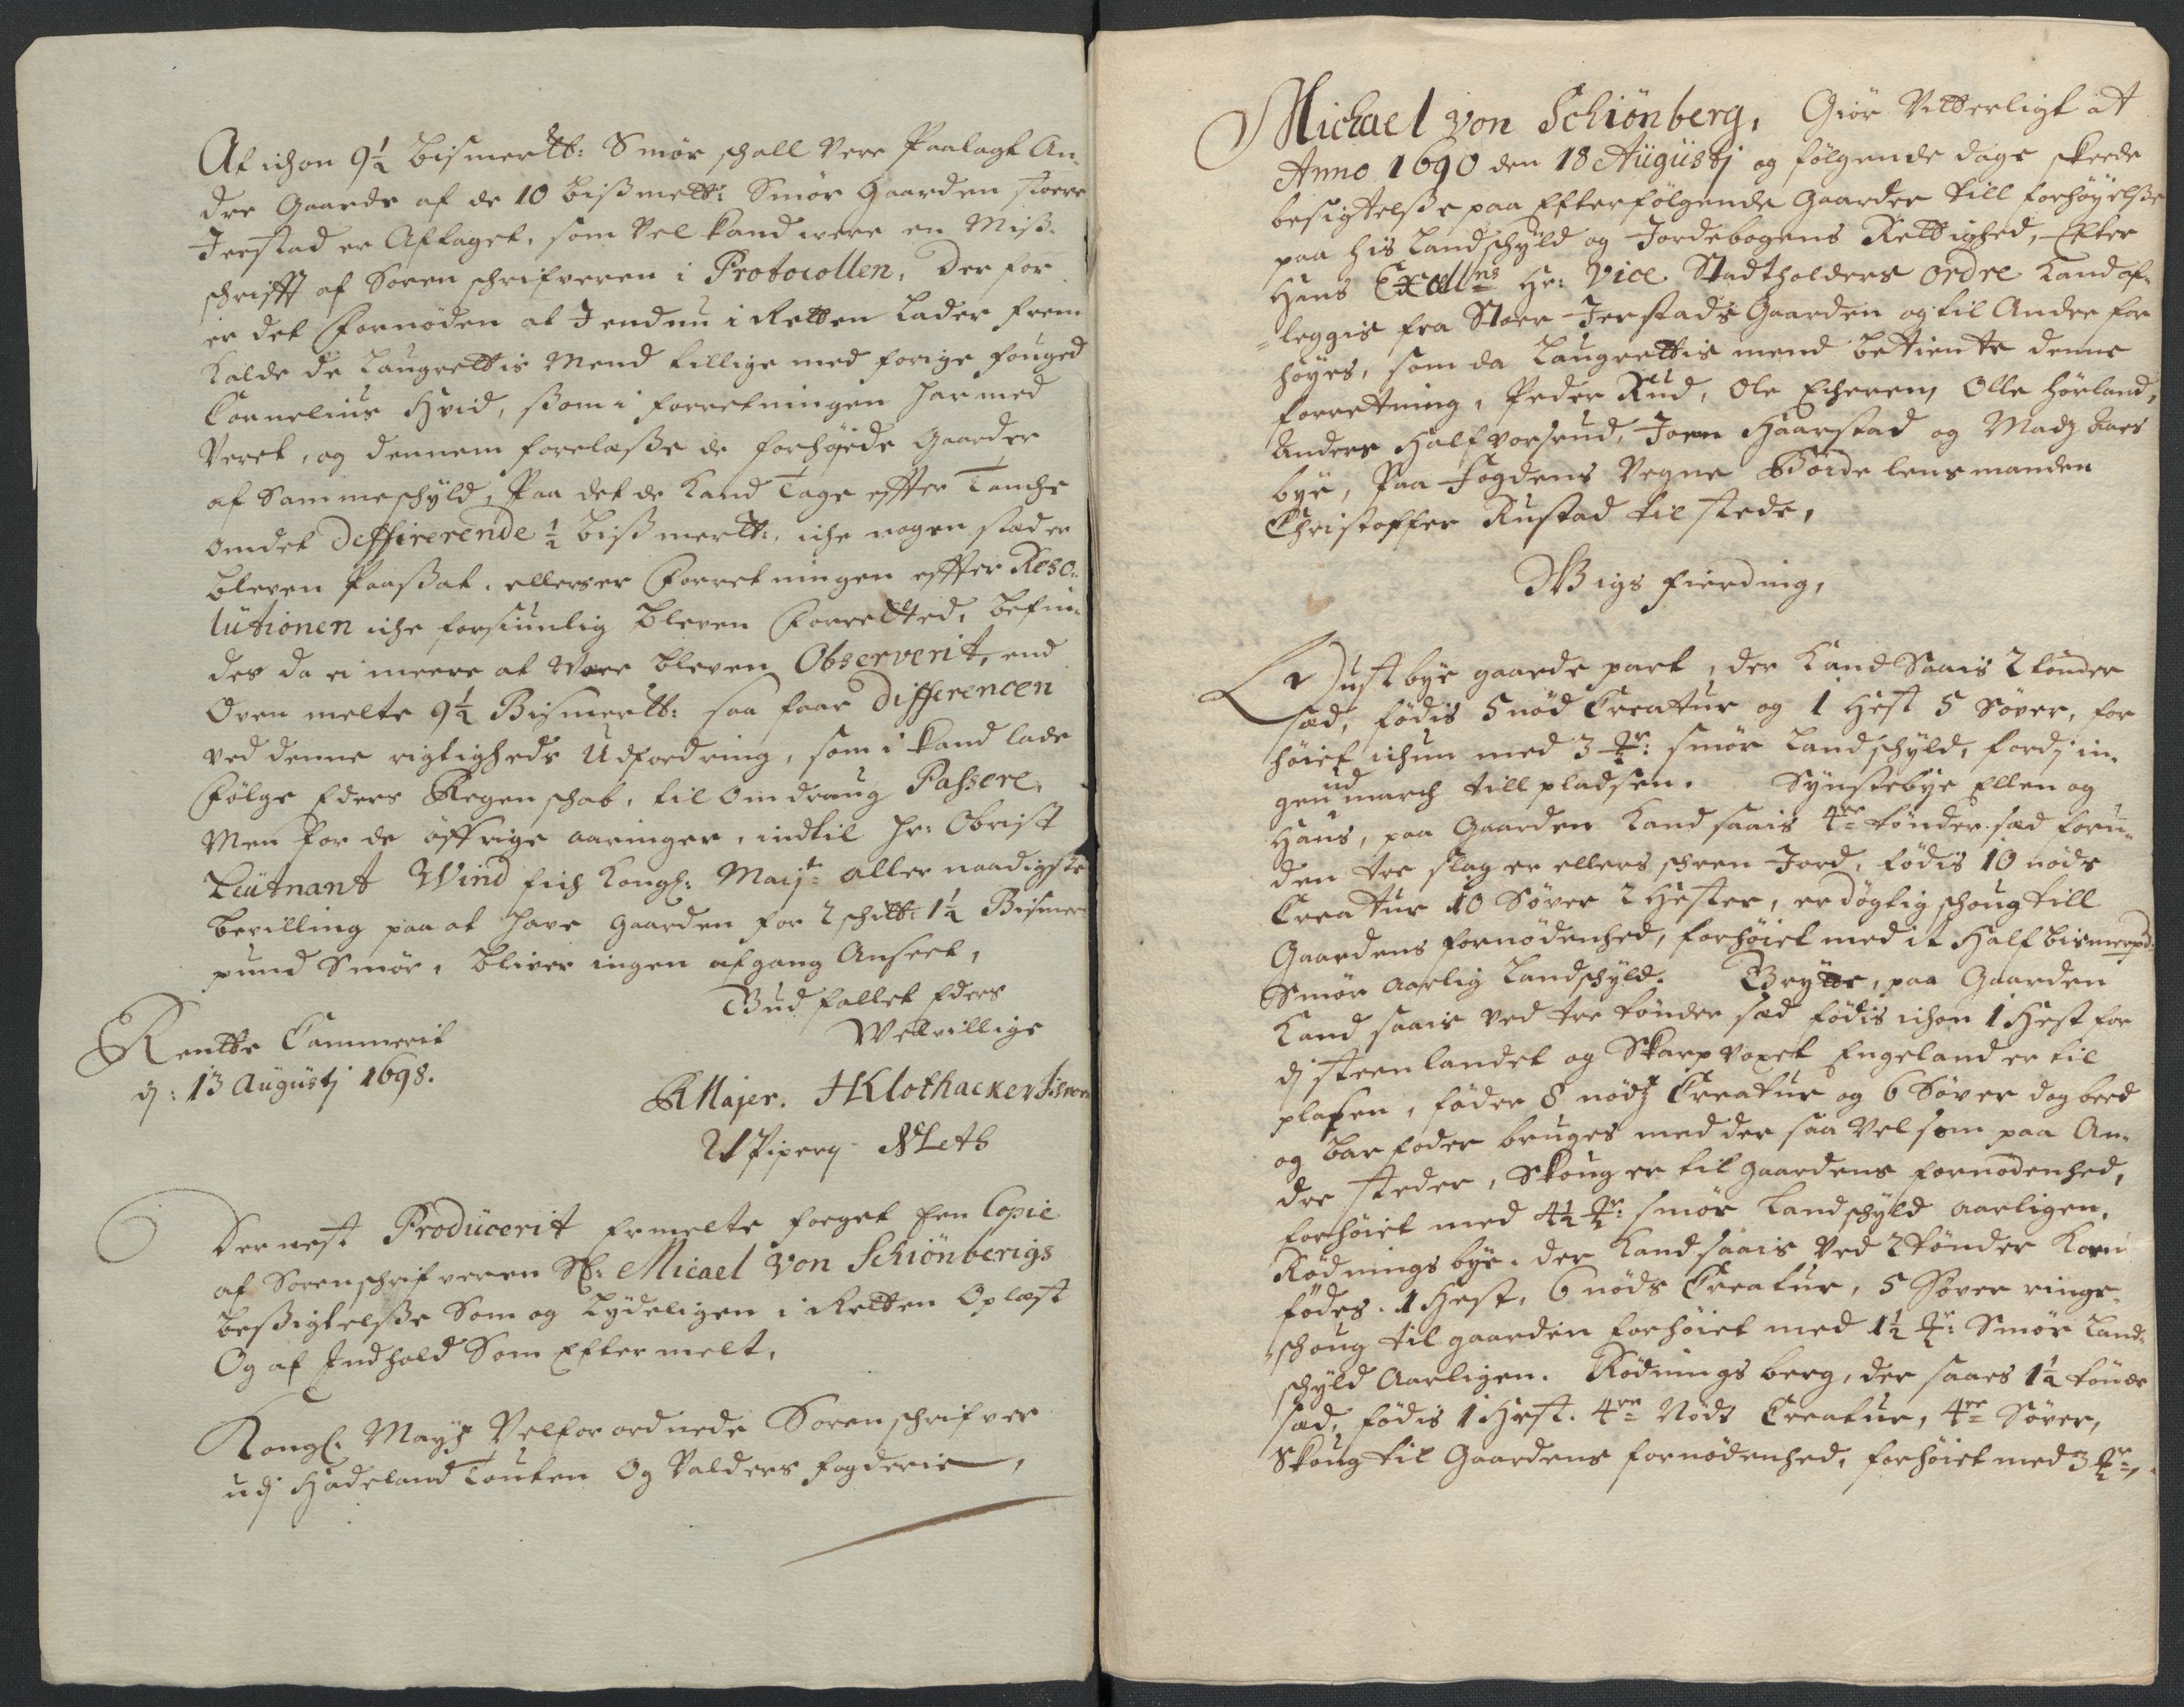 At ichon 9½ bismerlb: Smør schall være Paalagt An-
dre Gaarde af de 10 bißmerlb: Smør Gaarden storre
Jerstad er Aftaget, som Vel kand være en Miß-
schrifft af Sorenschrifveren i Protocollen, Derfor
er det Fornøden at J endnu i Retten Lader frem
Kalde de Laugrettis Mend tillige med forige fouged
Cornelius Hvid, ßom i forretningen har med
Veret, og dennem forelæße de forhøyede Gaarder
af Samme schyld, Paa det de Kand Tage effter Tanche
om det Deffirerende ½ bißmerlb:, iche nogen stæder
bleven Paaßat. ellers er Forretningen effter Reso-
lutionen iche forsiunlig bleven Forretted, befin-
des da ei meere at være bleven Observerit, end
Oven melte 9½ Bismerlb: saa faar Differencen
ved denne rigtigheds Udfordring, som i kand lade
Følge Eders Regenschab, til Omdraug Passere,
Men for de øffrige aaringer, indtil Hr: Obrist
Leutnant Wind fich Kongl: Mayt: aller naadigste
bevilling paa at have Gaarden for 2 schilb: 1½ Bismer
pund Smør, bliver ingen afgang Anseet,
Bud fallet Eders
Welvillige
Rentte Cammerit
d: 13 Augustj 1698.
H Klothacker
Dernest Producerit Ermelte foeget Een Copie
af Sorenschrifveren Sl: Micael Von Schiönbergs
beßigtelsße Som og Lydeligen i Retten Oplæst
Og af Indhold Som Efter melt,
Kongl: Mayts Velforordnede Sorenschrifver
udj Hadeland Touten Og Valders fogderie,
Michael Von Schiönberg, Giør Vitterligt at
Anno 1690 den 18 Augustj og følgende dage skeede
besigtelße paa Efterfølgende Gaarder till forhøyelße
paa his Landschyld og Jordebogens Rettighed, Efter
Hans Excellns Hr: Vice Stadtholders Ordre Kand af-
leggis fra Stoer Jerstads Gaarden og til Andre for
høyes, som da Laugrettis mend betiente denne
forretning, Peder Rud, Ole Echeren, Olle Hørland,
Anders Halfvorsrud, Joen Haarstad og Madz Aas
bye, Paa Fogdens Vegne Børde lensmanden
Christoffer Rustad til stede,
Wigs fierding,
Østbye gaarde part, der Kand Saais 2 tønder
sæd, fødis 5 nød Creatur og 1 Hest 5 Søver, for
høiet ichun med 3 mr: smør Landschyld, fordj in-
gen udmarch till pladsen. Synstebye Ellen og
Hans, paa Gaarden Kand saais 4re tønder sæd foru-
den tre slag er ellers schren Jord, fødis 10 nøds
Creatur 10 Søver 2 Hester, er døgtig schoug till
Gaardens fornødenhed, forhøiet med it Half bismerpd:
Smør Aarlig Landschyld. Brytte, paa Gaarden
Kand saais ved tre tønder sæd fødis ichon 1 Hest for
dj steenlandet og Skarpvoxet Engeland er til
plasen, føder 8 nødz Creatur og 6 Søver dog beed
og bar foder bruges med der saa Vel som paa An-
dre steder, Skoug er til gaardens fornødenhed,
forhøiet med 4½ mr: smør Landschyld aarligen.
Rødningsbye. der Kand saais Ved 2 tønder Korn
fødes. 1 Hest, 6 nøds Creatur, 5 Søver ringe
schoug til gaarden forhøiet med 1½ mr: Smør Land-
schyld Aarligen. Rødningsberg, der saaes 1½ tønde
sæd, fødis 1 Hest. 4re Nøds Creatur, 4re Søver,
Skoug til Gaardens fornødenhed, forhøiet med 3 mr:,